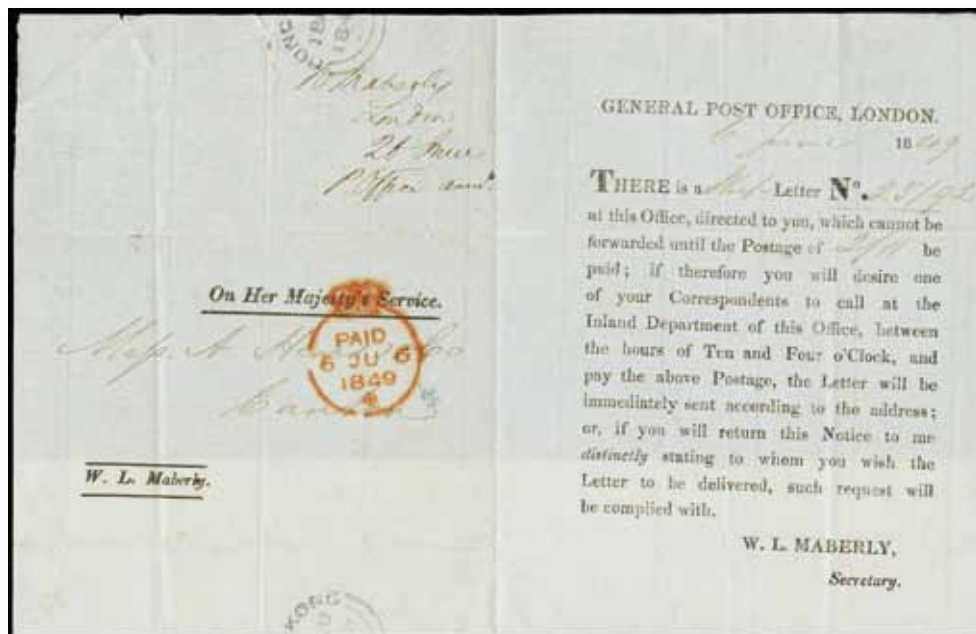 HONG
18
184
W Maberly
London
26 June
P Office
On Her Majesty's Service.
PAID
6 JU 6
1849
Mess. A
Canton
W. L. Maberly.
KONG
GENERAL POST OFFICE, LONDON.
6 June 1849
THERE is a Letter No.
at this Office, directed to you, which cannot be
forwarded until the Postage of 2/11 be
paid; if therefore you will desire one
of your Correspondents to call at the
Inland Department of this Office, between
the hours of Ten and Four o'Clock, and
pay the above Postage, the Letter will be
immediately sent according to the address;
or, if you will return this Notice to me
distinctly stating to whom you wish the
Letter to be delivered, such request will
be complied with.
W. L. MABERLY,
Secretary.